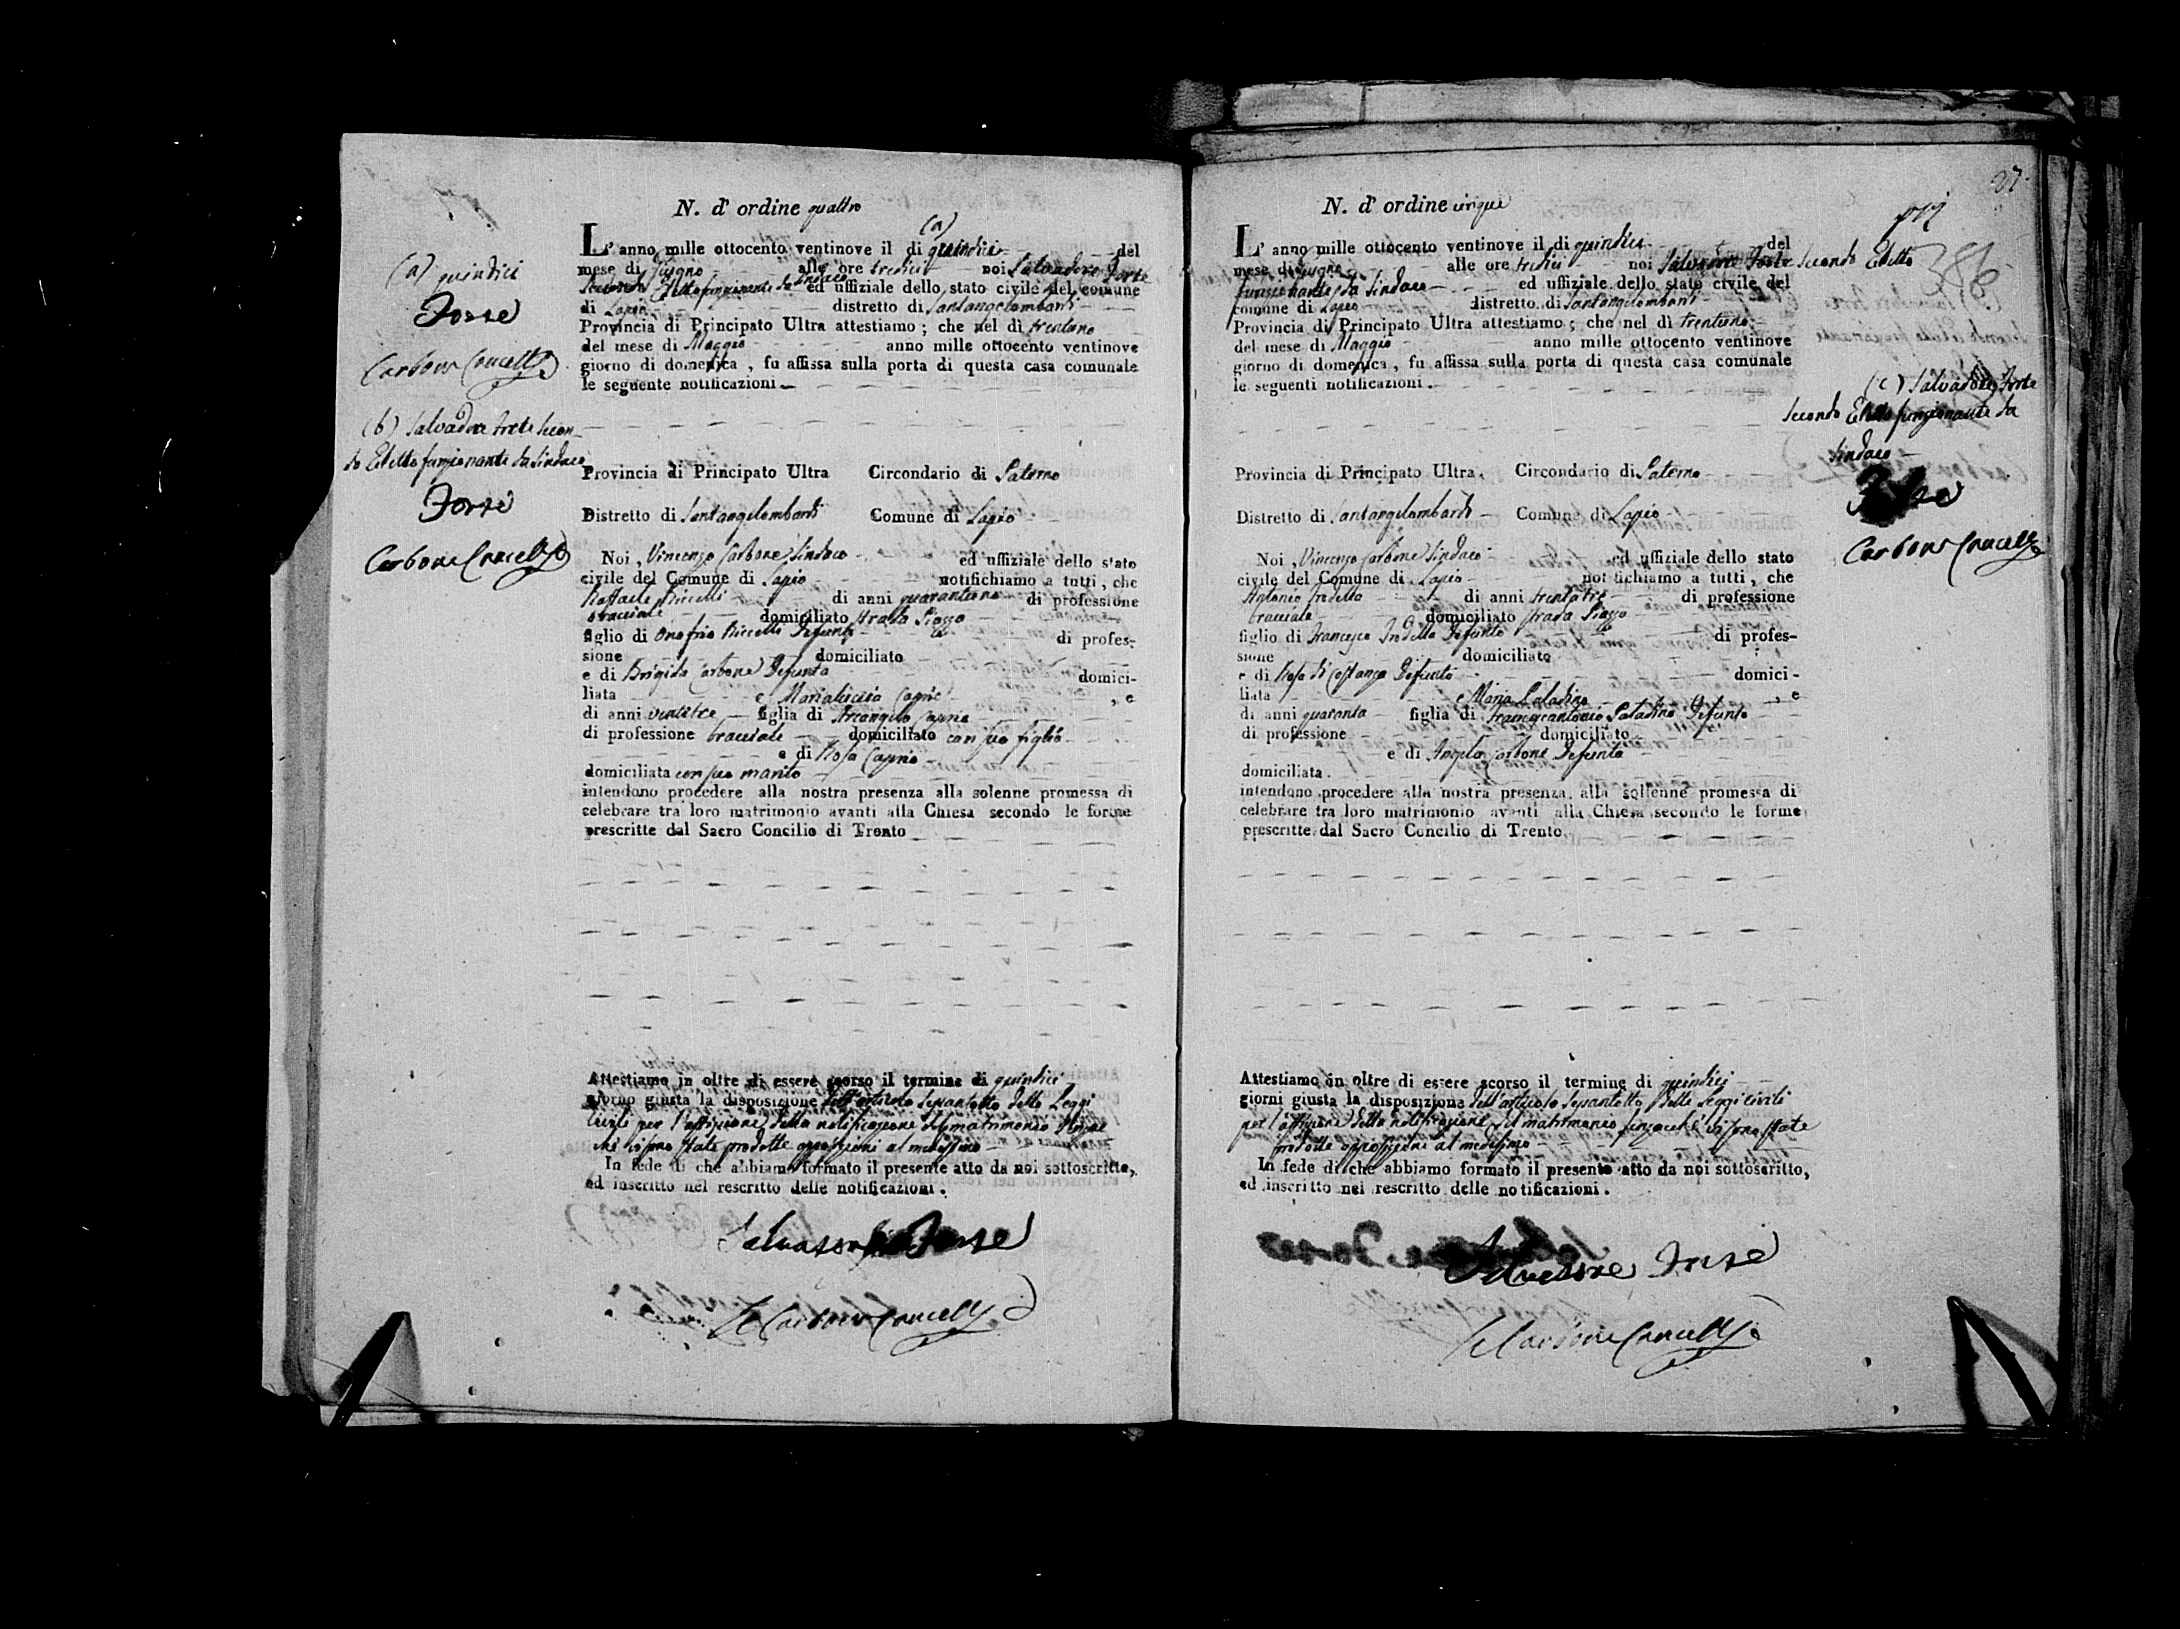 N. d' ordine quattro
(a)
L' anno mille ottocento ventinove il di quindici del
mese di Giugno alle ore tredici noi Salvadore Forte
Secondo Eletto funzionante da Sindaco ed uffiziale dello stato civile del comune
di Lapio distretto di Santangelolombardi
Provincia di Principato Ultra attestiamo ; che nel dì trentuno
del mese di Maggio anno mille ottocento ventinove
giorno di domenica , fu affissa sulla porta di questa casa comunale
le seguente notificazioni
Provincia di Principato Ultra Circondario di Paterno
Distretto di Santangelombardi Comune di Lapio
Noi , Vincenzo Carbone Sindaco ed uffiziale dello stato
civile del Comune di Lapio notifichiamo a tutti , che
Raffaele di anni quarantuno di professione
bracciale domiciliato strada Piazza
figlio di Onofrio Defunto di profes-
sione domiciliato
e di Brigida Carbone Defunta domici-
liata e Marialucia Caprio , e
di anni ventitre figlia di Arcangelo Caprio
di professione bracciale domiciliato con sua figlia
e di Rosa Caprio
domiciliata con suo marito
intendono procedere alla nostra presenza alla solenne promessa di
celebrare tra loro matrimonio avanti alla Chiesa secondo le forme
prescritte dal Sacro Concilio di Trento
Attestiamo in oltre di essere scorso il termine di quindici
giorno giusta la disposizione dell'articolo sessantotto delle Leggi
Civili per l'affissione della notificazione del matrimonio
che vi sono state prodotte opposizioni al medesimo
In fede di che abbiamo formato il presente atto da noi sottoscritto,
ed inscritto nel rescritto delle notificazioni .
Salvadore Forte
Carbone Cancell.e
(a) quindici
Forte
Carbone Cancell.e
(b) Salvadore Forte Secon-
do Eletto funzionante da Sindaco
Forte
Carbone Cancell.e
27
N. d' ordine cinque
L' anno mille ottocento ventinove il di quindici del
mese di Giugno alle ore tredici noi Salvadore Forte Secondo Eletto
funzionante da Sindaco ed uffiziale dello stato civile del
comune di Lapio distretto di Santangelombardi
Provincia di Principato Ultra attestiamo ; che nel dì trentuno
del mese di Maggio anno mille ottocento ventinove
giorno di domenica , fu affissa sulla porta di questa casa comunale
le seguenti notificazioni .
Provincia di Principato Ultra. Circondario di Paterno
Distretto di Santangelombardi Comune di Lapio
Noi , Vincenzo Carbone Sindaco ed uffiziale dello stato
civile del Comune di Lapio notifichiamo a tutti , che
Antonio Trodella di anni trentatre di professione
bracciale domiciliato strada Piazza
figlio di Francesco Trodella Defunto di profes-
sione domiciliato
e di Rosa di Costanzo Defunta domici-
liata e Maria Paladino , e
di anni quaranta figlia di Francescantonio Paladino Defunto
di professione domiciliato
e di Angela Carbone Defunta
domiciliata
intendono procedere alla nostra presenza alla sollenne promessa di
celebrare tra loro matrimonio avanti alla Chiesa secondo le forme
prescritte dal Sacro Concilio di Trento.
Attestiamo in oltre di essere scorso il termine di quindici
giorni giusta la disposizione dell'articolo sessantotto delle Leggi civili
per l'affissione della notificazione del matrimonio vi sono state
prodotte opposizioni al medesimo
In fede di che abbiamo formato il presente atto da noi sottoscritto,
ed inscritto nel rescritto delle notificazioni .
Salvadore Forte
Carbone Cancell.e
(c) Salvadore Forte
Secondo Eletto funzionante da
Sindaco
Forte
Carbone Cancell.e